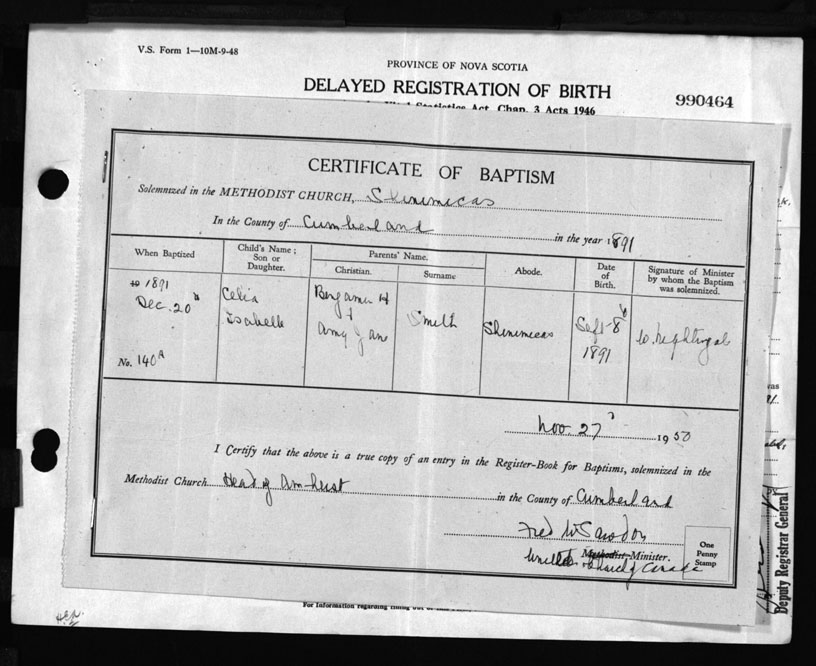 V.S. Form 1—10M-9-48
PROVINCE OF NOVA SCOTIA
DELAYED REGISTRATION OF BIRTH
990464
Vital Statistics Act, Chap. 3 Acts 1946
CERTIFICATE OF BAPTISM
Solemnized in the METHODIST CHURCH, Shinimicas
In the County of Cumberland in the year 1891
When Baptized
Child's Name; Son or Daughter.
Parents' Name.
Christian.
Surname
Abode.
Date of Birth.
Signature of Minister by whom the Baptism was solemnized.
1891
Dec. 20
No. 140A
Celia
Isabelle
Benjamin H
+
Amy Jane
Smith
Shinimicas
Sept 8
1891
W. Nightingale
Nov. 27 1950
I Certify that the above is a true copy of an entry in the Register-Book for Baptisms, solemnized in the
Methodist Church Head of Amherst in the County of Cumberland
Fred
Methodist, Minister.
United Church of Canada
One
Penny
Stamp
Deputy Registrar General
For Information regarding filling out of